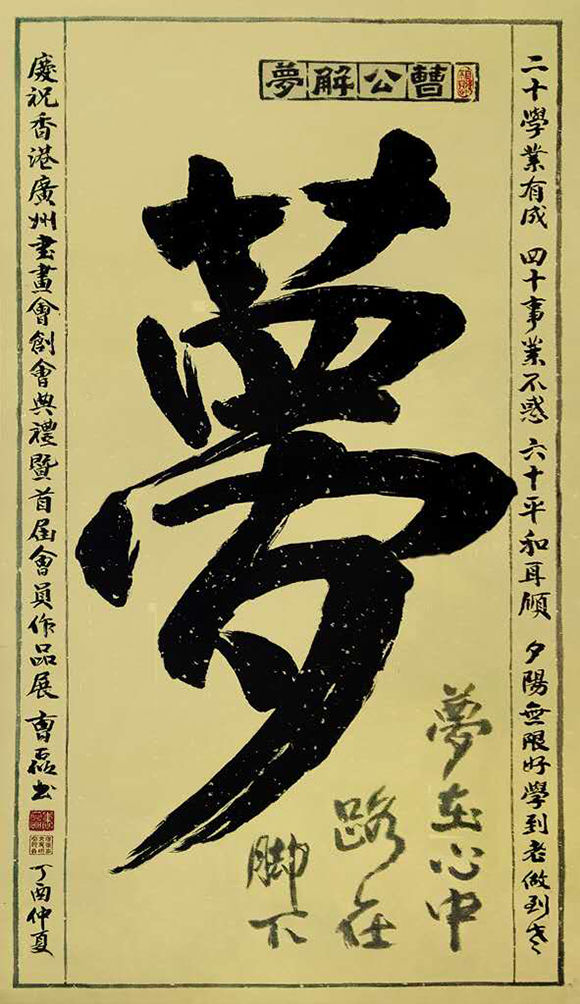 曹公解夢
二十學業有成 四十事業不惑 六十平和耳順 夕陽無限好學到老做到老
夢
夢在心中
路在
脚下
慶祝香港廣州書畫會創會典禮暨首屆會員作品展 曹磊書
丁酉仲夏